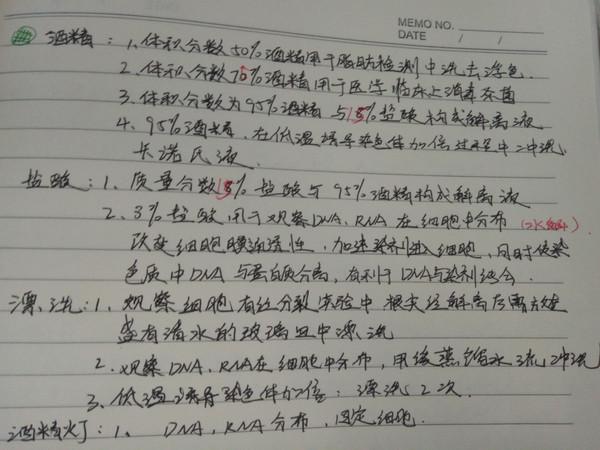 MEMO NO.
DATE / /
酒精：1.体积分数50%酒精用于脂肪检测中洗去浮色.
2.体积分数70%酒精用于医学临床上消毒杀菌
3.体积分数为95%酒精与15%盐酸构成解离液
4.95%酒精.在低温诱导染色体加倍过程中冲洗
卡诺氏液.
盐酸：1.质量分数15%盐酸与95%酒精构成解离液
2.8%盐酸用于观察DNA、RNA在细胞中分布(水解).
改变细胞膜通透性，加速染剂进入细胞，同时使染
色质中DNA与蛋白质分离，有利于DNA与染剂结合.
漂洗：1.观察细胞有丝分裂实验中根尖经解离后需放进
盛有清水的玻璃皿中漂洗
2.观察DNA、RNA在细胞中分布，用缓蒸馏水流冲洗
3.低温诱导染色体加倍：漂洗2次.
酒精灯：1.DNA，RNA分布，固定细胞.